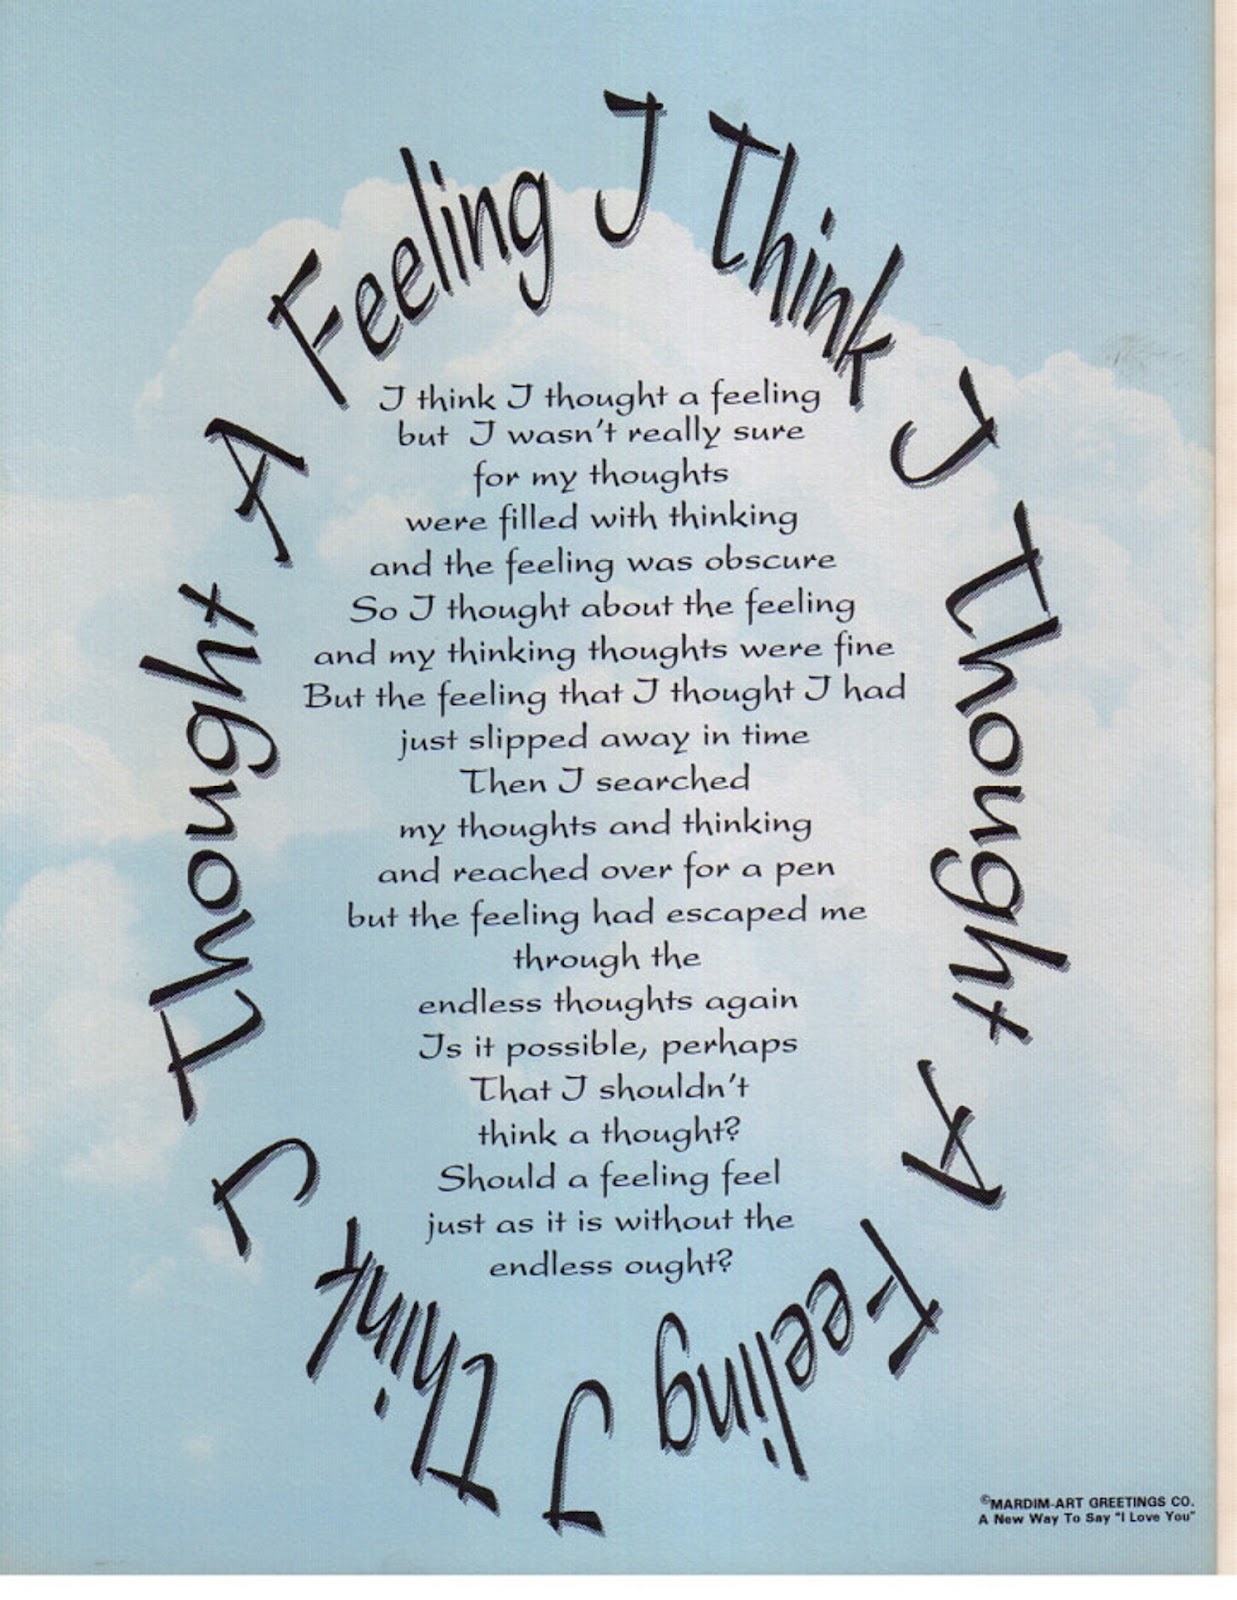 I Think I Thought A Feeling I Think I Thought A Feeling
I think I thought a feeling
but I wasn't really sure
for my thoughts
were filled with thinking
and the feeling was obscure
So I thought about the feeling
and my thinking thoughts were fine
But the feeling that I thought I had
just slipped away in time
Then I searched
my thoughts and thinking
and reached over for a pen
but the feeling had escaped me
through the
endless thoughts again
Is it possible, perhaps
That I shouldn't
think a thought?
Should a feeling feel
just as it is without the
endless ought?
©MARDIM-ART GREETINGS CO.
A New Way To Say "I Love You"